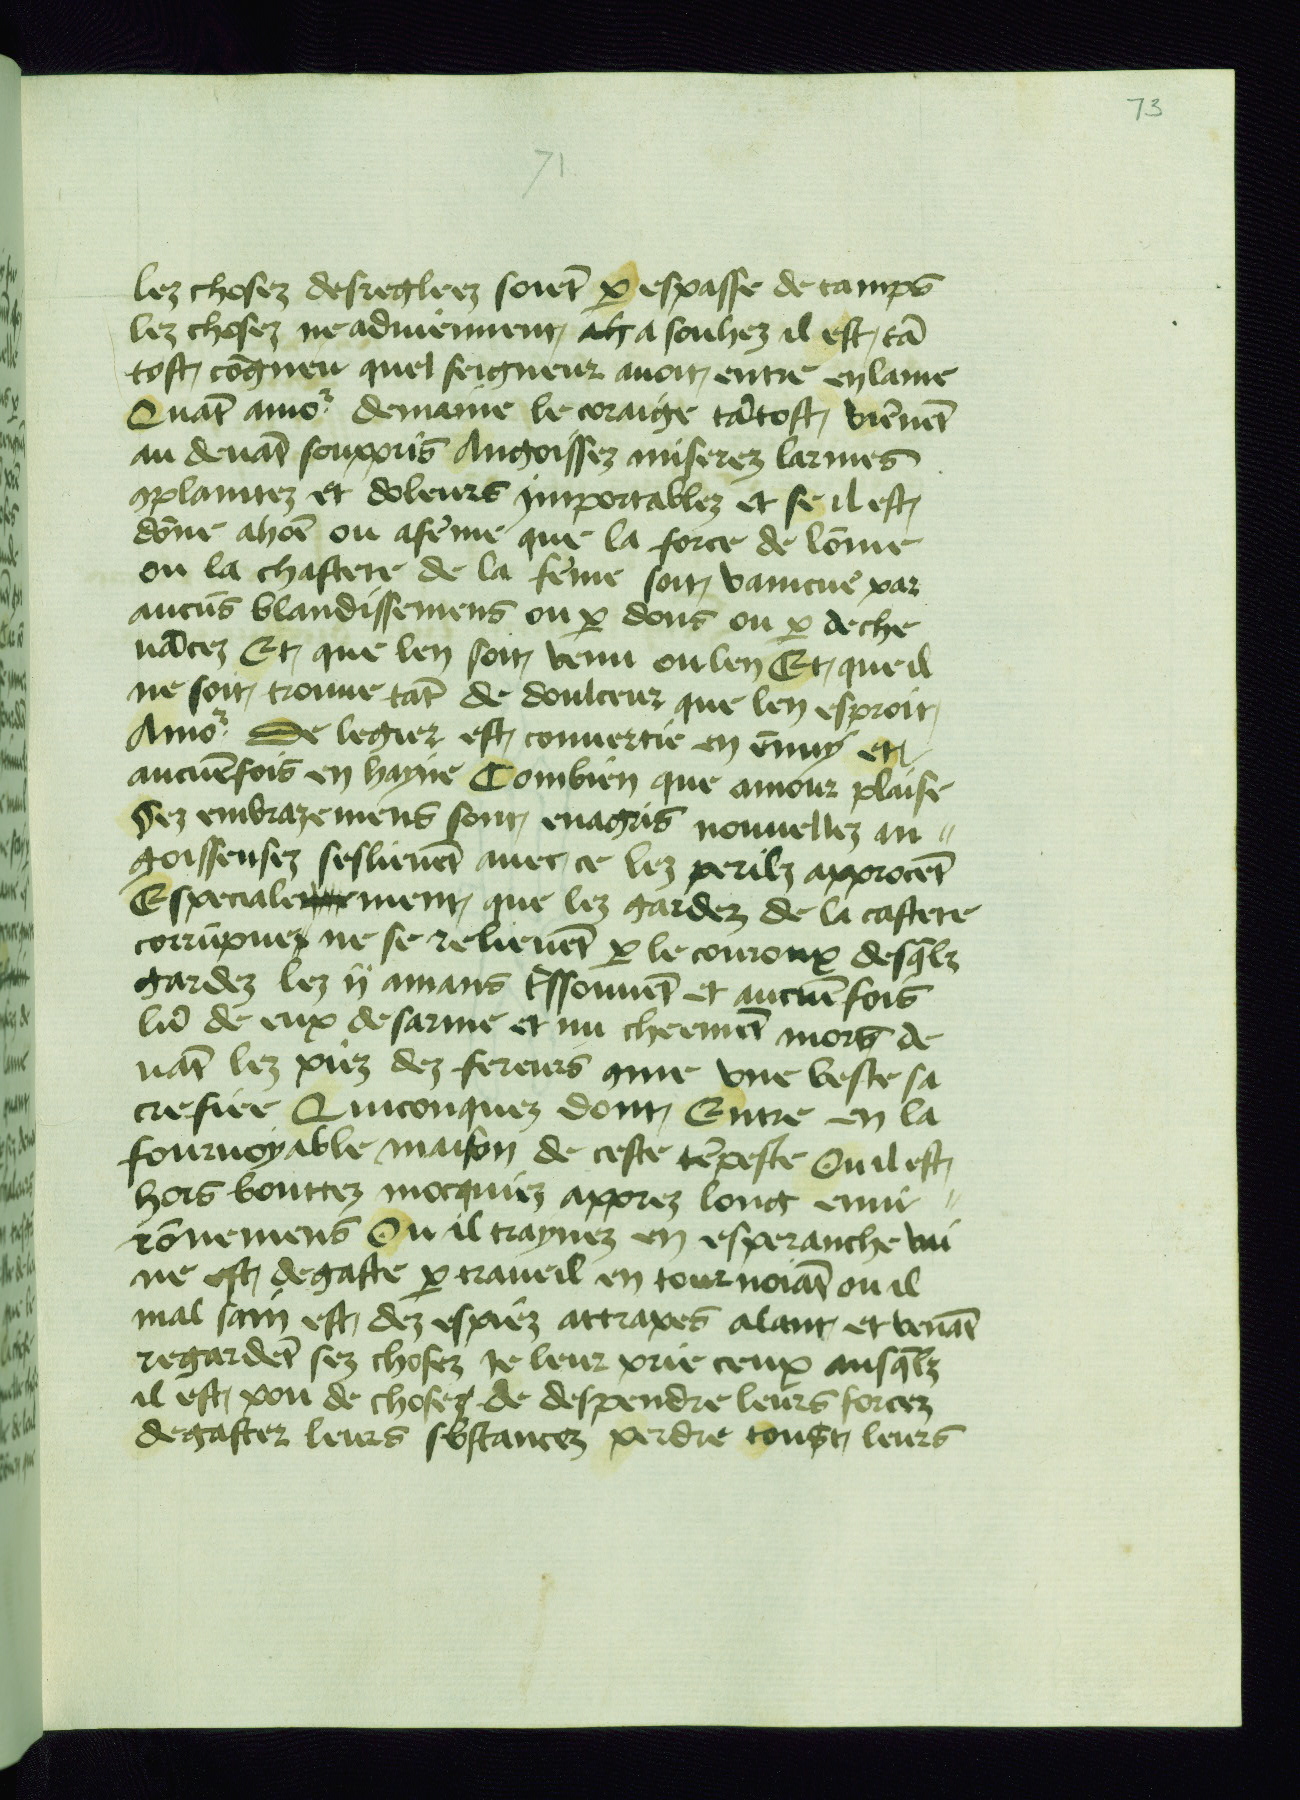 73
71
lez chosez desregleez soiēt ꝑ espasse de tamps
lez chosez ne adviennent a souhez il est tā
tost cōgneu quel seigneur avoit entre en lame
Quāt amoʳ demaine le coraige tātost viēnēt
au devāt souppris Angoissez miserez larmes
ꝯplaintez et doleurs importablez et se il est
dōne a hoē ou a fēme que la force de lōme
ou la chastete de la fēme soit vaincue par
aucūs blandissemens ou ꝑ dons ou ꝑ deche
vācez Et que len soit venu ou len Et que il
ne soit trouve tāt de doulceur que len esproit
Amoʳ De legier est convertie en ēnuy et
aucuēfois en hayne Combien que amour plaise
Sez embrazemens sont enagris nouvellez an〃
goissensez seslievēt avec ce lez perilz approcēt
Especialement que lez gardez de la castete
corrūpuez ne se relievēt ꝑ le couroux desq̄lz
gardez lez ij amans Essouvēt et aucuēfois
lū de eux desarme et nu cheemēt mors de
vāt lez piez dez fereurs ꝯme vne beste sa
crefiee Quiconquez dont Entre en la
fourvoyable maison de ceste tēpeste Ou il est
hors bouttez mocquiez apprez long envi〃
rōnemens Ou il traynez en esperanche vai
ne est degaste ꝑ traveil en tournoiāt ou il
mal sain est dez espiez attrapes alant et venāt
regardēt sez chosez Je leur prie ceux ausq̄lz
il est pou de chosez de despendre leurs forcez
degaster leurs sb̄stancez perdre toust leurs